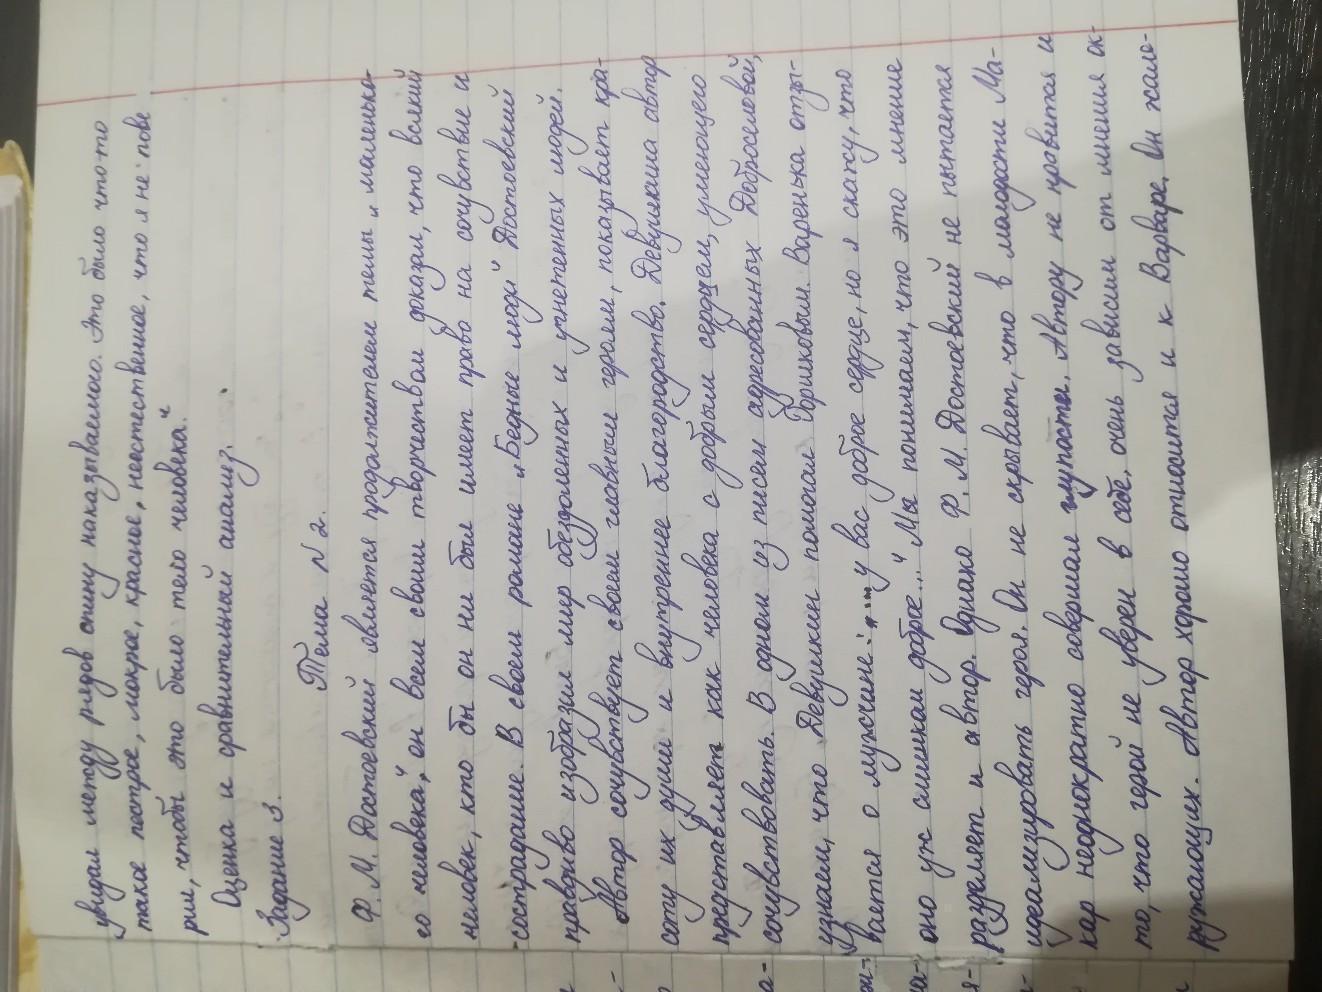 увидал между рядов спину наказываемого. Это было что-то
такое пестрое, мокрое, красное, неестественное, что я не пове
рил, чтобы это было тело человека."
Оценка и сравнительный анализ.
Задание 3.
Тема №2.
Ф. М. Достоевский является продолжателем темы „маленько-
го человека", он всем своим творчеством доказал, что всякий
человек, кто бы он ни был имеет право на сочувствие и
сострадание. В своем романе „Бедные люди" Достоевский
правдиво изобразил мир обездоленных и угнетенных людей.
Автор сочувствует своем главным героем, показывает кра-
соту их души и внутреннее благородство. Девушкина автор
представляет как человека с добрым сердцем, умеющего
сочувствовать. В одном из писем адресованных Доброселовой,
узнаем, что Девушкин помогал Горшковым. Варенька отзы-
вается о мужчине: „... у вас доброе сердце, но я скажу, что
оно уж слишком доброе..." Мы понимаем, что это мнение
разделяет и автор. Однако Ф. М. Достоевский не пытается
идеализировать героя. Он не скрывает, что в молодости Ма-
кар неоднократно совершал глупости. Автору не нравится и
то, что герой не уверен в себе, очень зависим от мнения ок-
ружающих. Автор хорошо относится и к Варваре. Он жале-